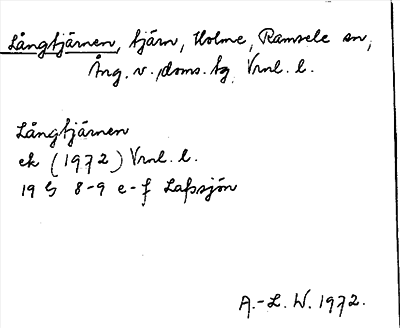 Långtjärnen, tjärn, Holme, Ramsele sn,
Ång. v. doms. tg. Vrnl. l.
Långtjärnen
ek (1972) Vrnl. l.
19 G 8-9 e-f Lafssjön
A.-L. W. 1972.